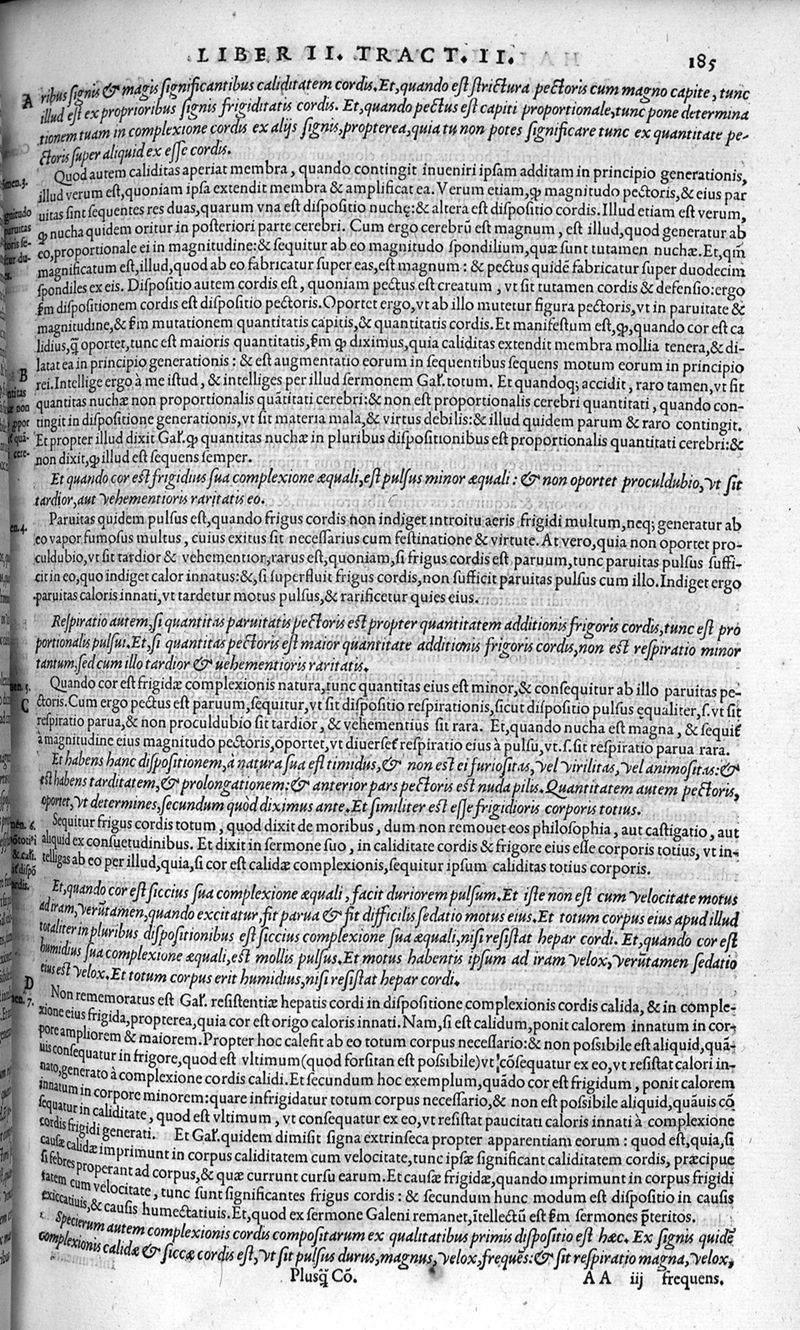 LIBER II. TRACT. II.
185
A
ribus signis & magis significantibus caliditatem cordis. Et, quando est strictura pectoris cum magno capite, tunc
illud est ex proprioribus signis frigiditatis cordis. Et, quando pectus est capiti proportionale, tunc pone determina
tionem tuam in complexione cordis ex alijs signis, propterea, quia tu non potes significare tunc ex quantitate pe-
ctoris super aliquid ex esse cordis.
Quod autem caliditas aperiat membra, quando contingit inueniri ipsam additam in principio generationis,
illud verum est, quoniam ipsa extendit membra & amplificat ea. Verum etiam, ꝙ magnitudo pectoris, & eius par
uitas sint sequentes res duas, quarum vna est dispositio nuchę: & altera est dispositio cordis. Illud etiam est verum,
ꝙ nucha quidem oritur in posteriori parte cerebri. Cum ergo cerebrū est magnum, est illud, quod generatur ab
eo, proportionale ei in magnitudine: & sequitur ab eo magnitudo spondilium, quæ sunt tutamen nuchæ. Et, qm̄
magnificatum est, illud, quod ab eo fabricatur super eas, est magnum: & pectus quidē fabricatur super duodecim
spondiles ex eis. Dispositio autem cordis est, quoniam pectus est creatum, vt sit tutamen cordis & defensio: ergo
s̄m dispositionem cordis est dispositio pectoris. Oportet ergo, vt ab illo mutetur figura pectoris, vt in paruitate &
magnitudine, & s̄m mutationem quantitatis capitis, & quantitatis cordis. Et manifestum est, ꝙ, quando cor est ca
lidius, q̄ oportet, tunc est maioris quantitatis, s̄m ꝙ diximus, quia caliditas extendit membra mollia tenera, & di-
latat ea in principio generationis: & est augmentatio eorum in sequentibus sequens motum eorum in principio
B
rei. Intellige ergo à me istud, & intelliges per illud sermonem Gal. totum. Et quandoq; accidit, raro tamen, vt sit
quantitas nuchæ non proportionalis quātitati cerebri: & non est proportionalis cerebri quantitati, quando con-
tingit in dispositione generationis, vt sit materia mala, & virtus debilis: & illud quidem parum & raro contingit.
Et propter illud dixit Gal. ꝙ quantitas nuchæ in pluribus dispositionibus est proportionalis quantitati cerebri: &
non dixit, ꝙ illud est sequens semper.
Et quando cor est frigidius sua complexione æquali, est pulsus minor æquali: & non oportet proculdubio, vt sit
tardior, aut vehementioris raritatis eo.
en. 4.
Paruitas quidem pulsus est, quando frigus cordis non indiget introitu aeris frigidi multum, neq; generatur ab
eo vapor fumosus multus, cuius exitus sit necessarius cum festinatione & virtute. At vero, quia non oportet pro-
culdubio, vt sit tardior & vehementior, rarus est, quoniam, si frigus cordis est paruum, tunc paruitas pulsus suffi-
cit in eo, quo indiget calor innatus: &, si superfluit frigus cordis, non sufficit paruitas pulsus cum illo. Indiget ergo
paruitas caloris innati, vt tardetur motus pulsus, & rarificetur quies eius.
Respiratio autem, si quantitas paruitatis pectoris est propter quantitatem additionis frigoris cordis, tunc est pro
portionalis pulsui. Et, si quantitas pectoris est maior quantitate additionis frigoris cordis, non est respiratio minor
tantum, sed cum illo tardior & uehementioris raritatis.
C
Quando cor est frigidæ complexionis natura, tunc quantitas eius est minor, & consequitur ab illo paruitas pe-
ctoris. Cum ergo pectus est paruum, sequitur, vt sit dispositio respirationis, sicut dispositio pulsus equaliter, s. vt sit
respiratio parua, & non proculdubio sit tardior, & vehementius sit rara. Et, quando nucha est magna, & sequit̄
à magnitudine eius magnitudo pectoris, oportet, vt diuerset̄ respiratio eius à pulsu, vt. s. sit respiratio parua rara.
Et habens hanc dispositionem, à natura sua est timidus, & non est ei furiositas, vel virilitas, vel animositas: &
est habens tarditatem, & prolongationem: & anterior pars pectoris est nuda pilis. Quantitatem autem pectoris,
oportet, vt determines, secundum quod diximus ante. Et similiter est esse frigidioris corporis totius.
Sequitur frigus cordis totum, quod dixit de moribus, dum non remouet eos philosophia, aut castigatio, aut
aliquid ex consuetudinibus. Et dixit in sermone suo, in caliditate cordis & frigore eius esse corporis totius, vt in-
telligas ab eo per illud, quia, si cor est calidæ complexionis, sequitur ipsum caliditas totius corporis.
Et, quando cor est siccius sua complexione æquali, facit duriorem pulsum. Et iste non est cum velocitate motus
ad iram, verūtamen, quando excitatur, fit parua & fit difficilis sedatio motus eius. Et totum corpus eius apud illud
totaliter in pluribus dispositionibus est siccius complexione sua æquali, nisi resistat hepar cordi. Et, quando cor est
humidius sua complexione æquali, est mollis pulsus. Et motus habentis ipsum ad iram velox, verūtamen sedatio
eius est velox. Et totum corpus erit humidius, nisi resistat hepar cordi.
D
en. 7.
Non rememoratus est Gal. resistentiæ hepatis cordi in dispositione complexionis cordis calida, & in comple-
xione eius frigida, propterea, quia cor est origo caloris innati. Nam, si est calidum, ponit calorem innatum in cor-
pore ampliorem & maiorem. Propter hoc calefit ab eo totum corpus necessario: & non possibile est aliquid, quā-
uis consequatur in frigore, quod est vltimum (quod forsitan est possibile) vt cōsequatur ex eo, vt resistat calori in-
nato, generato à complexione cordis calidi. Et secundum hoc exemplum, quādo cor est frigidum, ponit calorem
innatum in corpore minorem: quare infrigidatur totum corpus necessario, & non est possibile aliquid, quāuis cō
sequatur in caliditate, quod est vltimum, vt consequatur ex eo, vt resistat paucitati caloris innati à complexione
cordis frigidi generati. Et Gal. quidem dimisit signa extrinseca propter apparentiam eorum: quod est, quia, si
causæ calidæ imprimunt in corpus caliditatem cum velocitate, tunc ipsæ significant caliditatem cordis, præcipue
si febres properant ad corpus, & quæ currunt cursu earum. Et causæ frigidæ, quando imprimunt in corpus frigidi
tatem cum velocitate, tunc sunt significantes frigus cordis: & secundum hunc modum est dispositio in causis
exiccatiuis, & causis humectatiuis. Et, quod ex sermone Galeni remanet, ītellectū est s̄m sermones p̄teritos.
Specierum autem complexionis cordis compositarum ex qualitatibus primis dispositio est hæc. Ex signis quidē
complexionis calidæ & siccæ cordis est, vt sit pulsus durus, magnus, velox, frequēs: & sit respiratio magna, velox,
Plusq̄ Cō. AA iij frequens.